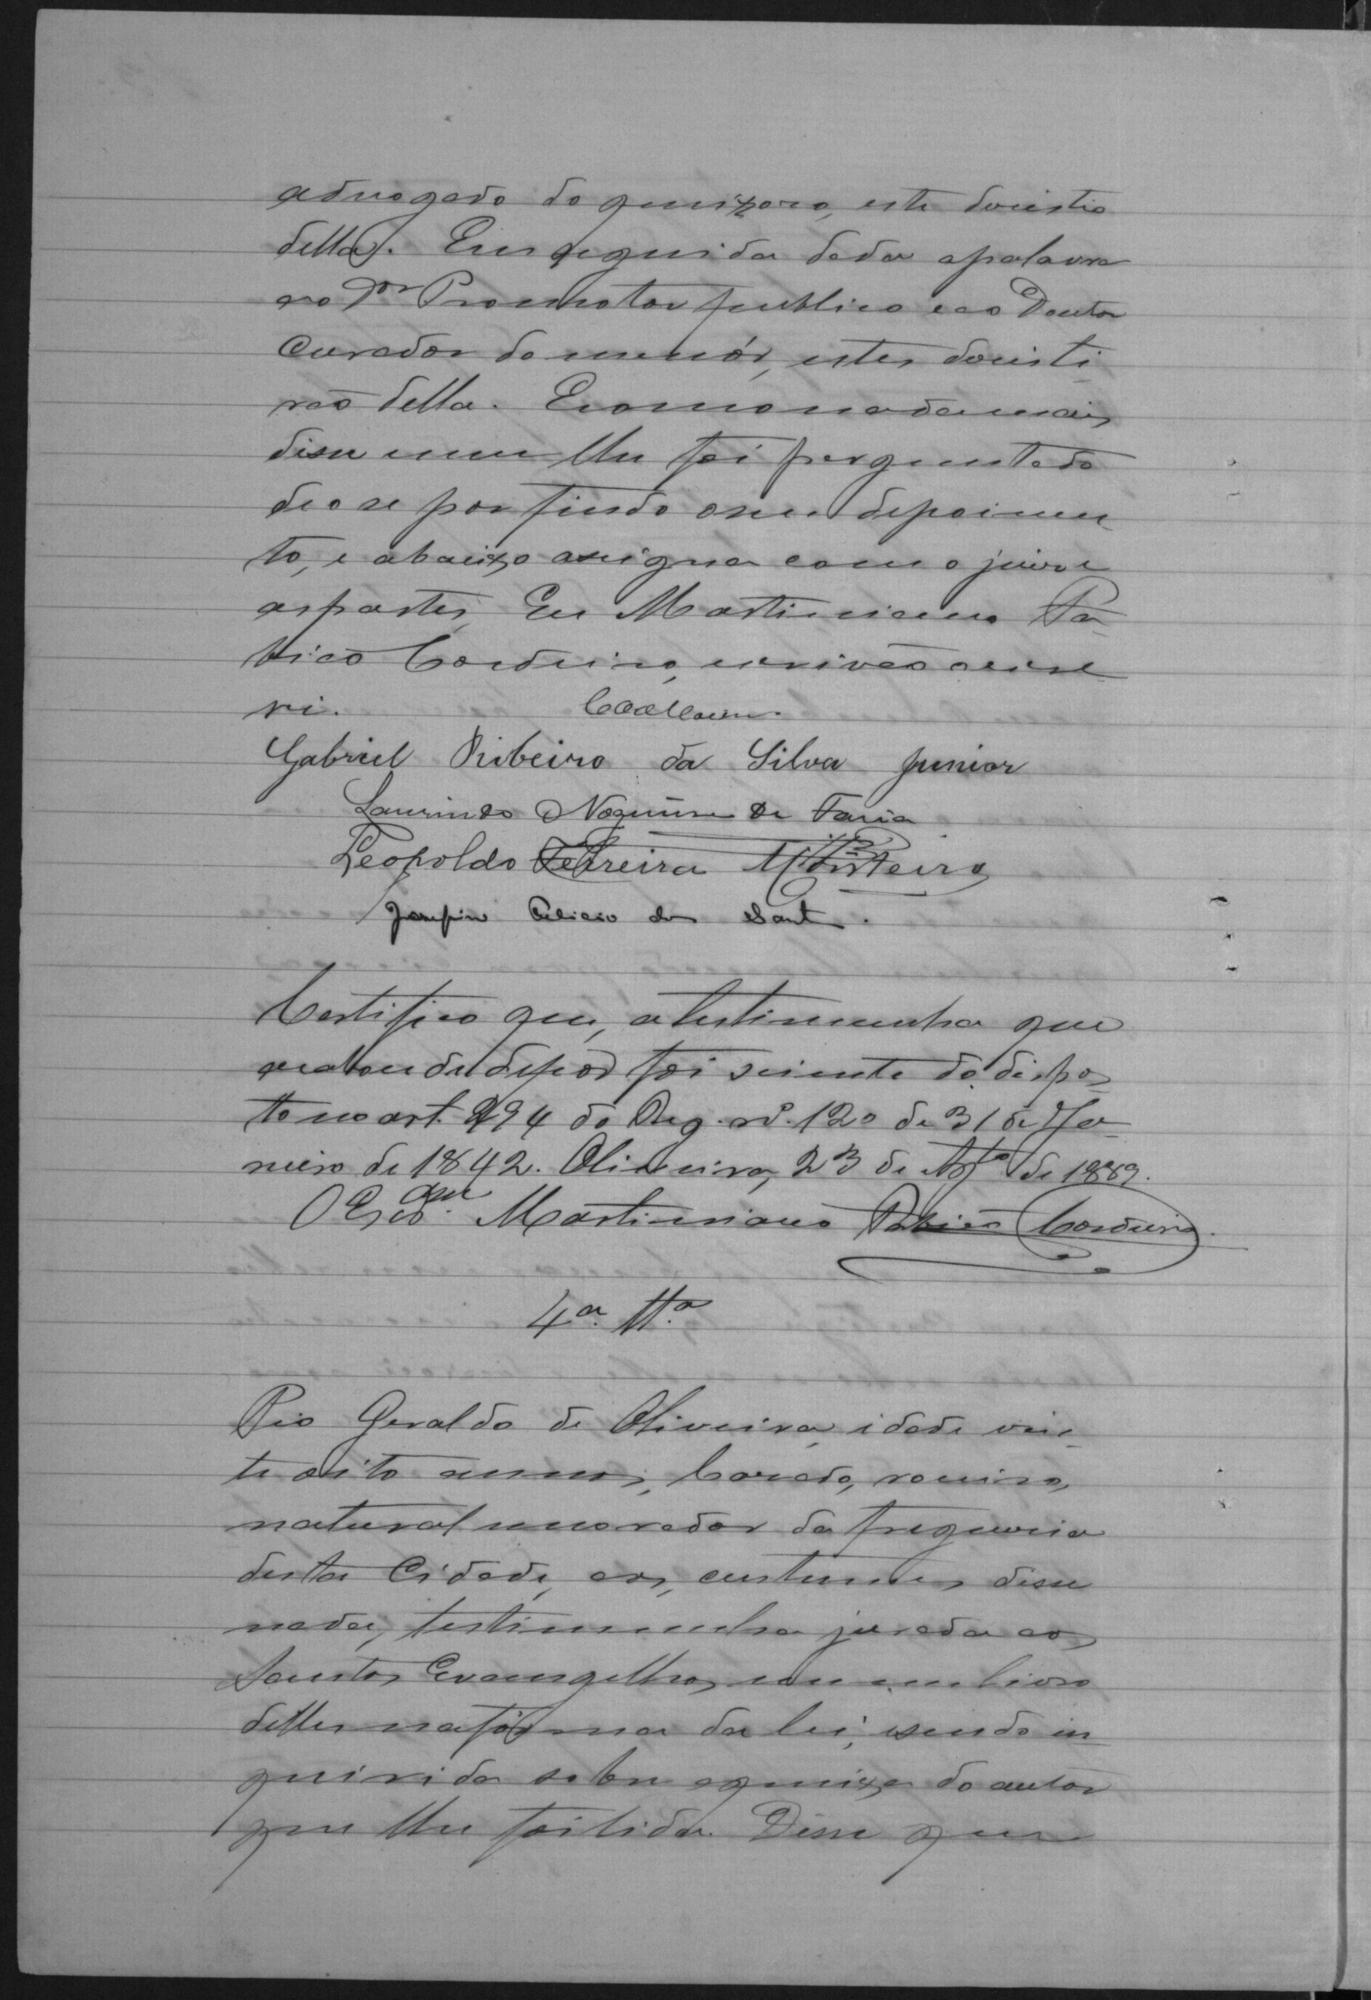 advogado do queixoso, este desistio
della. Em seguida dada a palavra
ao Dor Promotor publico e ao Doutor
Curador do menór, estes desisti
rão della. E como nada mais
disse nem lhe foi perguntado
deo se por findo o seu depoimen
to, e abaixo assigna com o juiz e
as partes, Eu Martiniano Pa
tricio Cordeiro, escrivão o escre
vi.
Gabriel Ribeiro da Silva Junior
Laurindo Nogueira de Faria
Leopoldo Ferreira Monteiro
dos Santos.
Certifico que, a testimunha que
acabou de depôr foi sciente do dispos
to no art. 294 do Reg. nº. 120 de 31 de Ja
neiro de 1842. Oliveira, 23 de Agto de 1889.
O Escam Martiniano Patricio Cordeiro.
4a. Tta.
Pio Geraldo de Oliveira, idade vin
te oito annos, Casado, roceiro,
natural morador da freguesia
desta Cidade, aos custumes disse
nada, testimunha jurada aos
Santos Evangelhos em um livro
delles na fórma da lei, e sendo in
quirida sobre a queixa do autor
que lhe foi lida. Disse que